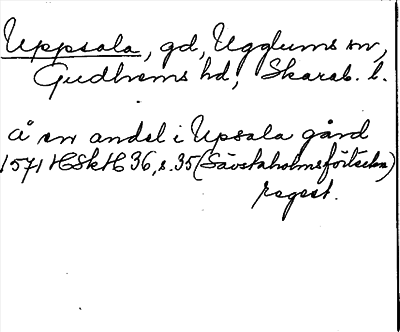 Uppsala, gd, Ugglums sn,
Gudhems hd, Skarab. l.
å en andel i Upsala gård
1571 HSkH 36, s. 35 (Sävstaholmsförteckn)
regest.